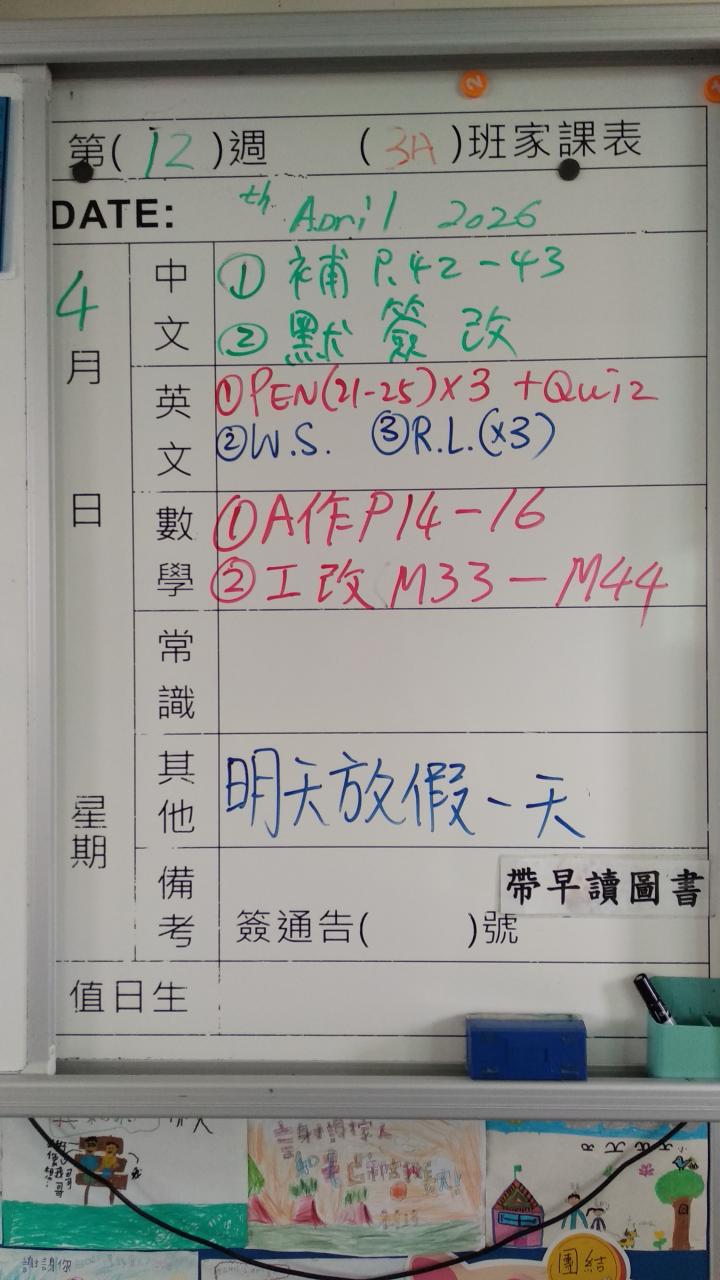 第( 12 )週 ( 3A )班家課表
DATE: th April 2026
4月 日 星期
中文
① 補 P.42-43
② 默 簽 改
英文
① PEN(21-25)x3 + Quiz
② W.S. ③ R.L.(x3)
數學
① A作 P14-16
② 工改 M33-M44
常識
其他
明天放假一天
備考
帶早讀圖書
簽通告( )號
值日生
謝謝你
團結